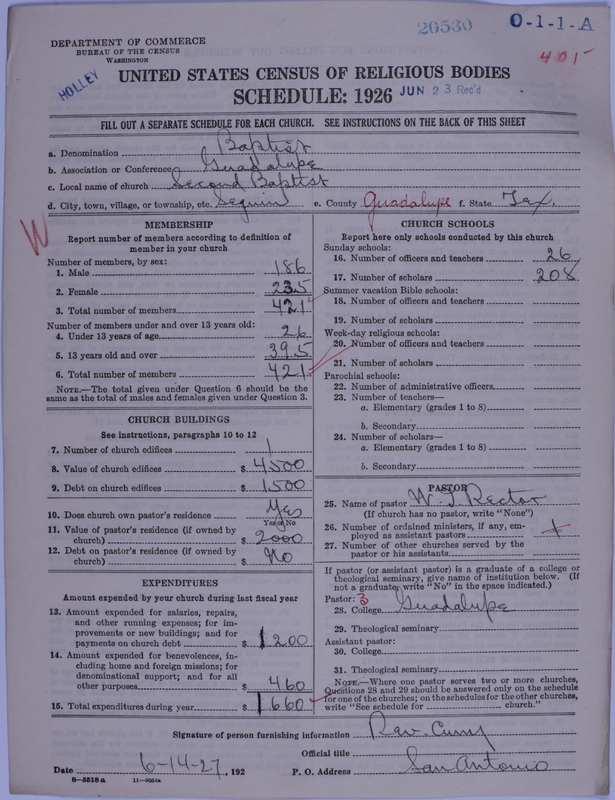 20530 0-1-1-A
DEPARTMENT OF COMMERCE
BUREAU OF THE CENSUS
WASHINGTON
401
HOLLEY
UNITED STATES CENSUS OF RELIGIOUS BODIES
SCHEDULE: 1926 JUN 23 Rec'd
FILL OUT A SEPARATE SCHEDULE FOR EACH CHURCH. SEE INSTRUCTIONS ON THE BACK OF THIS SHEET
a. Denomination Baptist
b. Association or Conference Guadalupe
c. Local name of church Second Baptist
d. City, town, village, or township, etc. Seguin e. County Guadalupe f. State Tex.
W
MEMBERSHIP
Report number of members according to definition of
member in your church
Number of members, by sex:
1. Male 186
2. Female 235
3. Total number of members 421
Number of members under and over 13 years old:
4. Under 13 years of age 26
5. 13 years old and over 395
6. Total number of members 421
NOTE.—The total given under Question 6 should be the
same as the total of males and females given under Question 3.
CHURCH BUILDINGS
See instructions, paragraphs 10 to 12
7. Number of church edifices 1
8. Value of church edifices $ 4500
9. Debt on church edifices $ 1500
10. Does church own pastor's residence Yes
Yes or No
11. Value of pastor's residence (if owned by
church) $ 2000
12. Debt on pastor's residence (if owned by
church) $ No
EXPENDITURES
Amount expended by your church during last fiscal year
13. Amount expended for salaries, repairs,
and other running expenses; for im-
provements or new buildings; and for
payments on church debt $ 1200
14. Amount expended for benevolences, in-
cluding home and foreign missions; for
denominational support; and for all
other purposes $ 460
15. Total expenditures during year $ 1660
CHURCH SCHOOLS
Report here only schools conducted by this church
Sunday schools:
16. Number of officers and teachers 26
17. Number of scholars 208
Summer vacation Bible schools:
18. Number of officers and teachers
19. Number of scholars
Week-day religious schools:
20. Number of officers and teachers
21. Number of scholars
Parochial schools:
22. Number of administrative officers
23. Number of teachers—
a. Elementary (grades 1 to 8)
b. Secondary
24. Number of scholars—
a. Elementary (grades 1 to 8)
b. Secondary
PASTOR
25. Name of pastor W. J. Rector
(If church has no pastor, write "None")
26. Number of ordained ministers, if any, em-
ployed as assistant pastors
27. Number of other churches served by the
pastor or his assistants
If pastor (or assistant pastor) is a graduate of a college or
theological seminary, give name of institution below. (If
not a graduate, write "No" in the space indicated.)
Pastor: 3
28. College Guadalupe
29. Theological seminary
Assistant pastor:
30. College
31. Theological seminary
NOTE.—Where one pastor serves two or more churches,
Questions 28 and 29 should be answered only on the schedule
for one of the churches; on the schedules for the other churches,
write "See schedule for church."
Signature of person furnishing information Rev.
Official title
Date 6-14-27, 192 P. O. Address San Antonio
8-5518a